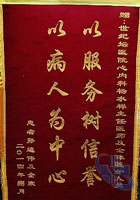 赠:世纪坛医院心内科杨水祥主任医师及全体医护人员
以服务树信誉
以病人为中心
患者孙遵伟及全家
二〇一一年捌月